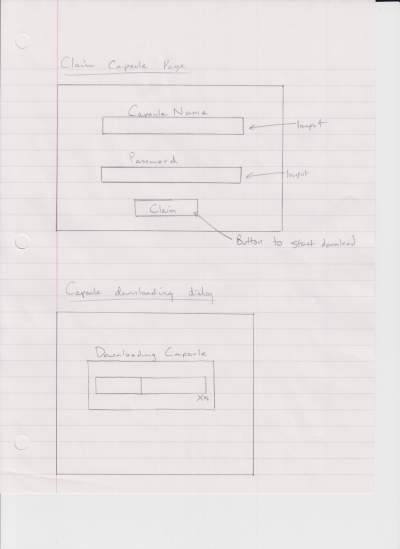 Claim Capsule Page
Capsule Name
Input
Password
Input
Claim
Button to start download
Capsule downloading dialog
Downloading Capsule
X%